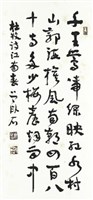 千里鶯啼綠映紅水村
山郭酒旗風南朝四百八
十寺多少樓臺煙雨中
杜牧诗江南春 卧石